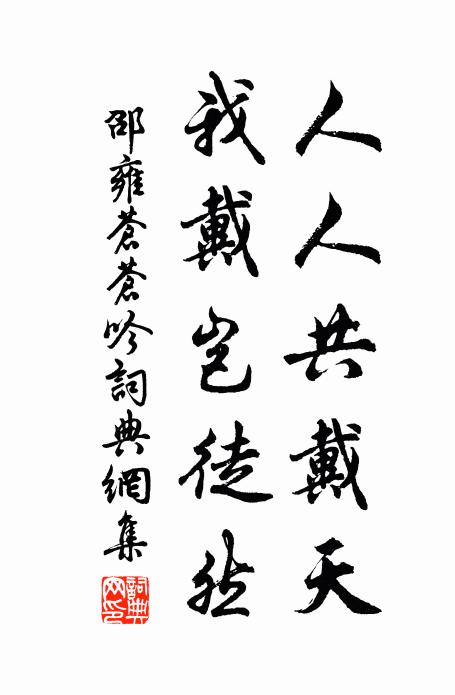 人人共戴天
我戴岂徒然
邵雍蒼蒼吟詞典網集
詞典网印